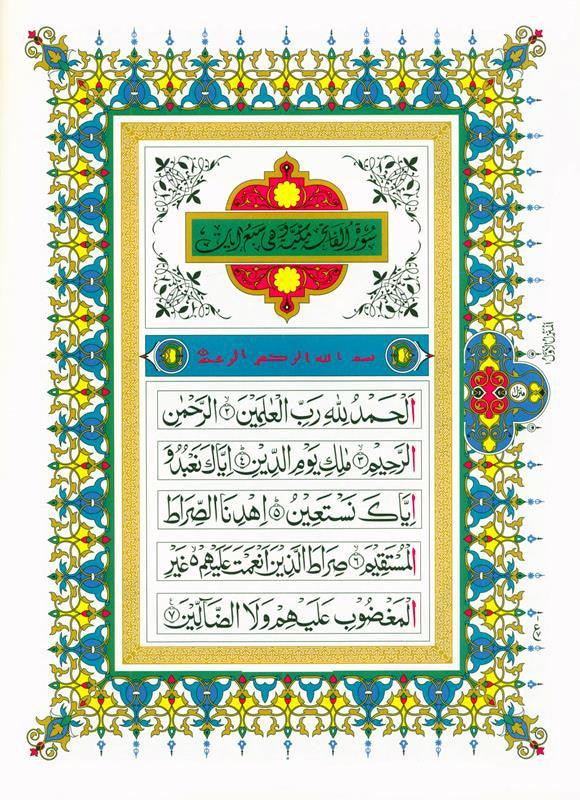 سورة الفاتحة مكية وهي سبع آيات
بسم الله الرحمن الرحيم
اَلْحَمْدُ لِلّٰهِ رَبِّ الْعٰلَمِيْنَ ۟٢ الرَّحْمٰنِ
الرَّحِيْمِ ۟٣ مٰلِكِ يَوْمِ الدِّيْنِ ۟٤ اِيَّاكَ نَعْبُدُ وَ
اِيَّاكَ نَسْتَعِيْنُ ۟٥ اِهْدِنَا الصِّرَاطَ
الْمُسْتَقِيْمَ ۟٦ صِرَاطَ الَّذِيْنَ اَنْعَمْتَ عَلَيْهِمْ ۵ غَيْرِ
الْمَغْضُوْبِ عَلَيْهِمْ وَلَا الضَّآلِّيْنَ ۟٧
منزل
المنزل الاول